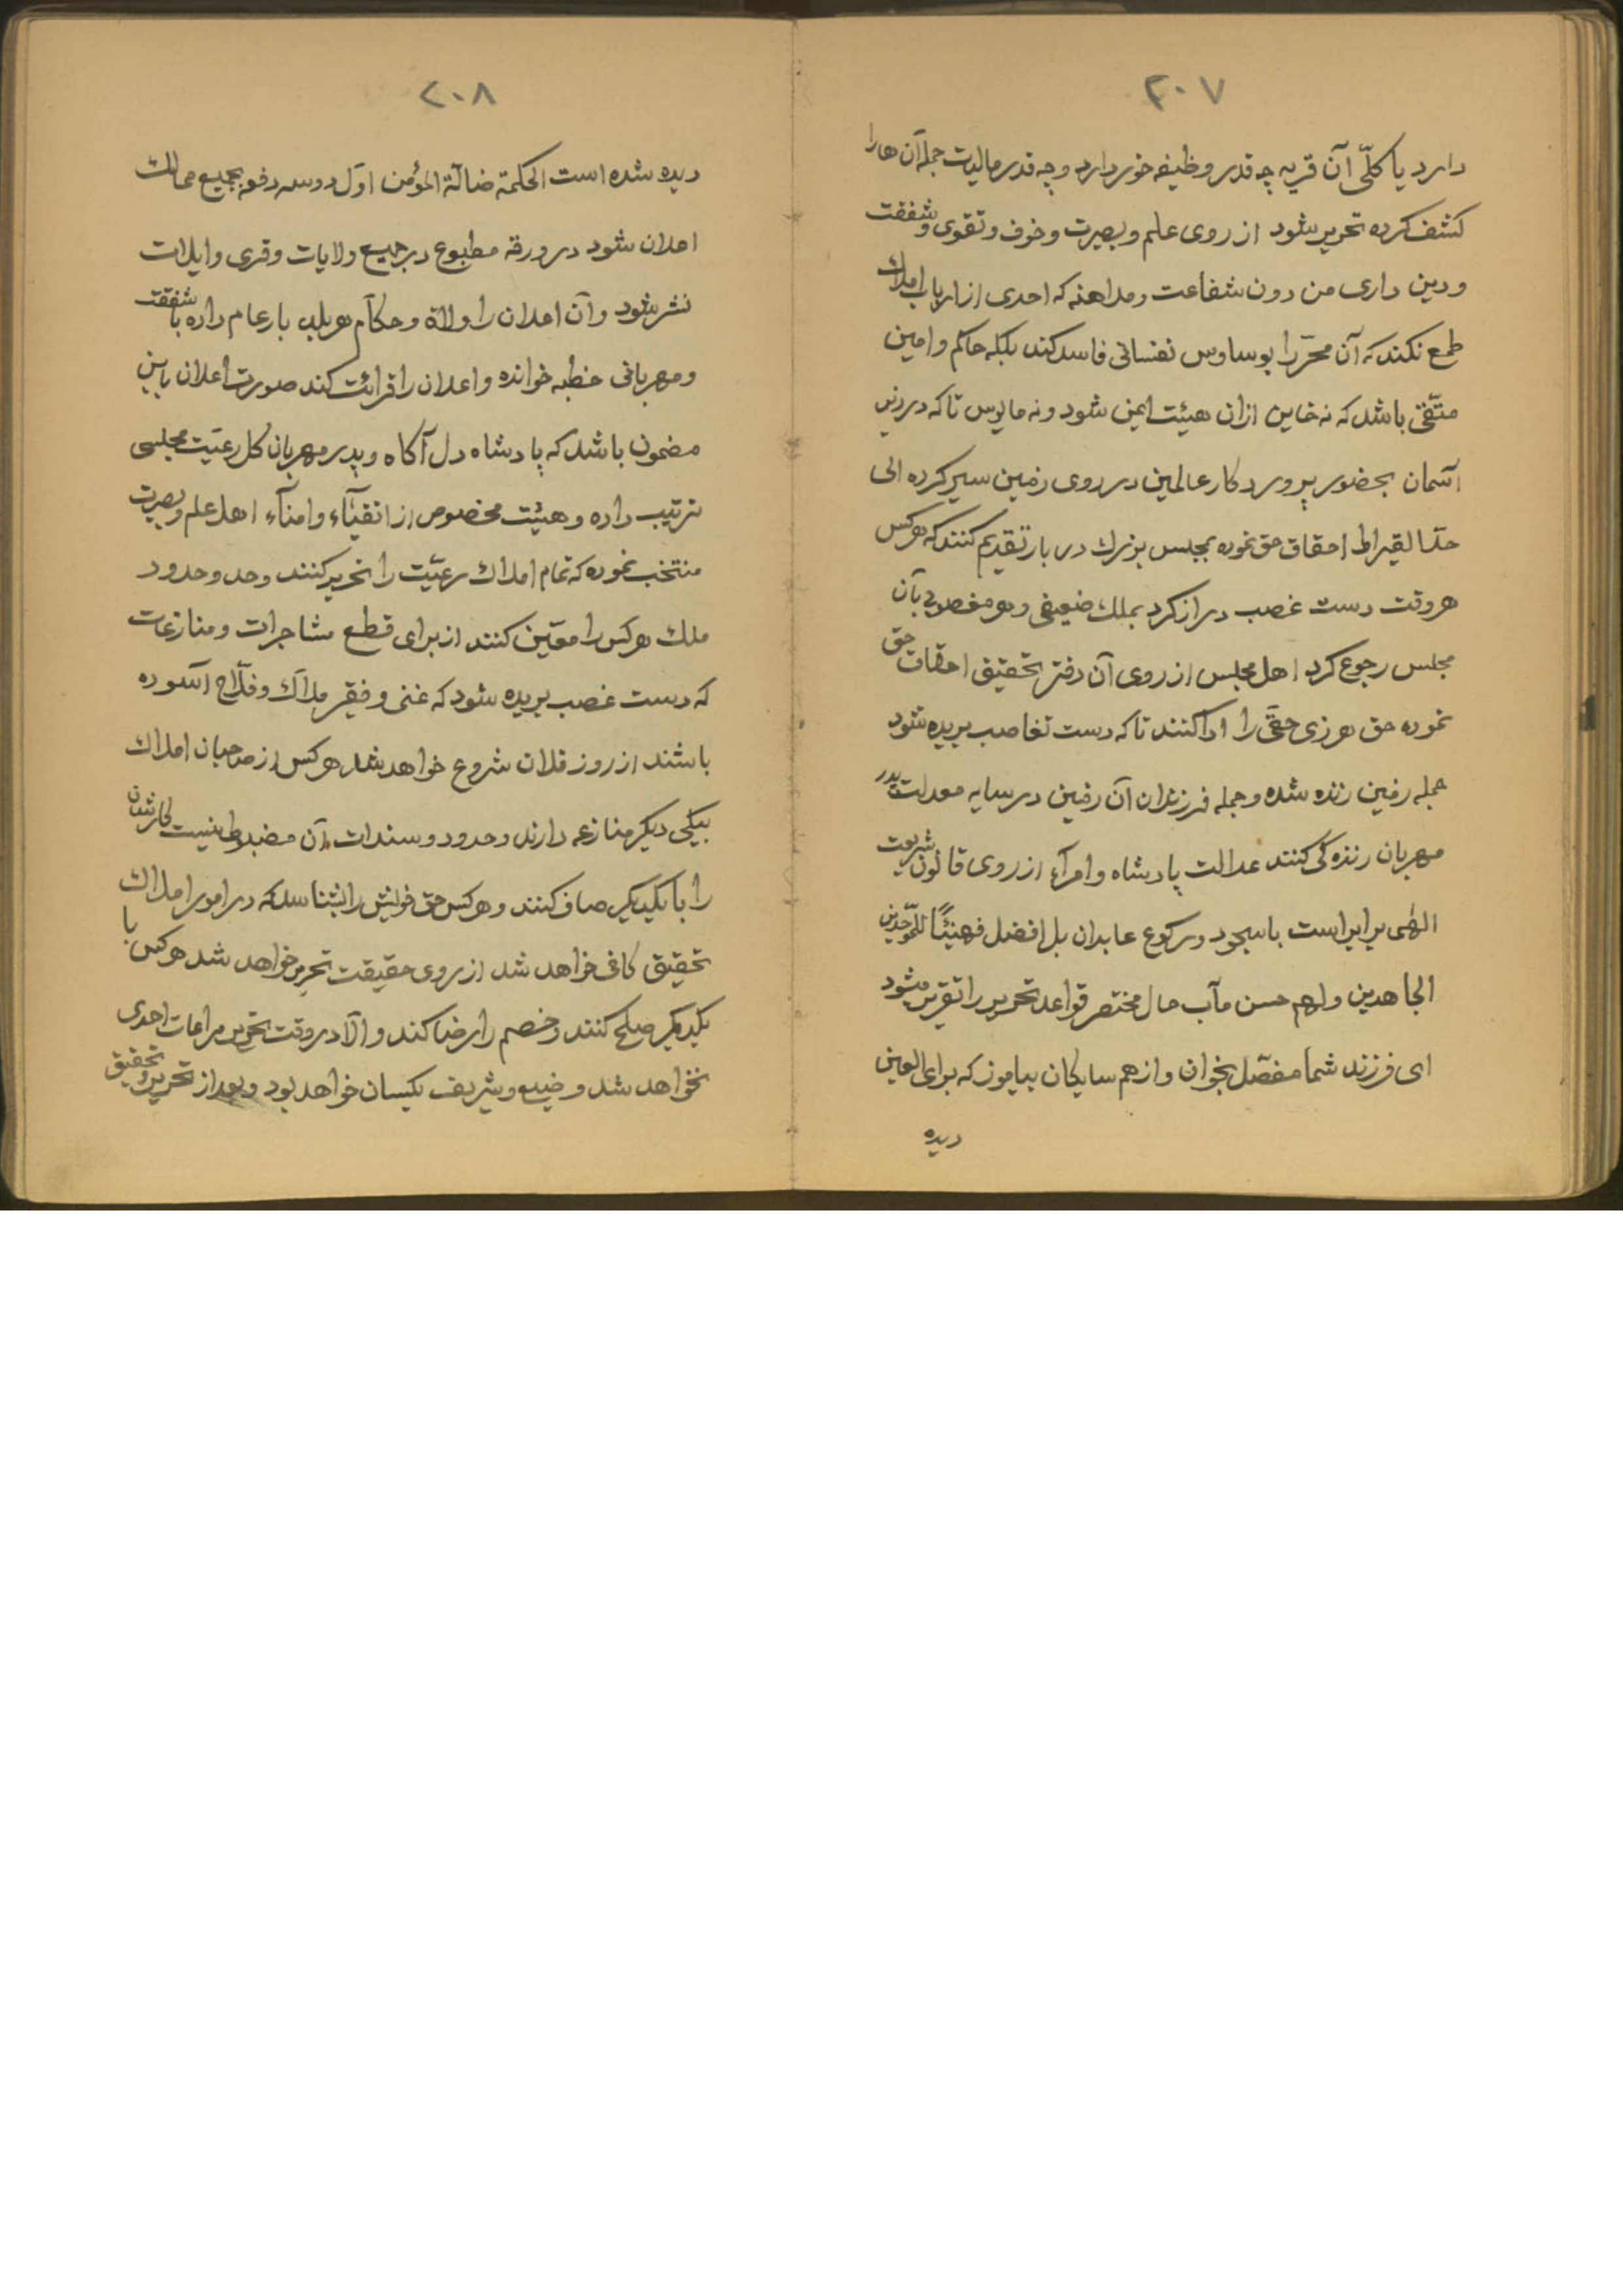 ۲۰۷
دارد یا کلّی آن قریه چه قدر وظیفه خور دارد وچه قدر مالیت جمله آن هارا
کشف کرده تحریر شود از روی علم وبصیرت وخوف وتقوی وشفقت
ودین داری من دون شفاعت ومداهنه که احدی از ارباب املاک
طمع نکند که آن محرّر را بوساوس نفسانی فاسد کند بلکه حاکم وامین
متّقی باشد که نه خاین ازان هیئت ایمن شود ونه مایوس تا که در زیر
آسمان بحضور پروردکار عالمین در روی زمین سیر کرده الی
حدّ القیراط احقاق حق نموده بمجلس بزرك دربار تقدیم کنند که هرکس
هروقت دست غصب دراز کرد بملك ضعیفی وهو مغصوب بآن
مجلس رجوع کرد اهل مجلس از روی آن دفتر تحقیق احقاق حق
نموده حق هرذی حقّی را ادا کنند تا که دست تغاصب بریده شود
جمله زمین زنده شده وجمله فرزندان آن زمین در سایه معدلت پدر
مهربان زنده کی کنند عدالت پادشاه وامرآء از روی قانون شریعت
الهی برابر است باسجود ورکوع عابدان بل افضل فهنیئًا للموحّدین
الجاهدین ولهم حسن مآب حال مختصر قواعد تحریر را تقریر میشود
ای فرزند شما مفصّل بخوان واز هم سایکان بیاموز که برای العین
دیده
۲۰۸
دیده شده است الحکمة ضالّة المؤمن اوّل دوسه دفعه بجمیع ممالك
اعلان شود در ورقه مطبوع در جمیع ولایات وقری وایلات
نشر شود وآن اعلان را ولاة وحکّام هر بلد بار عام داده با شفقت
ومهربانی خطبه خوانده واعلان را قرائت کند صورت اعلان باین
مضمون باشد که پادشاه دل آکاه وپدر مهربان کل رعیّت مجلسی
ترتیب داده وهیئت مخصوص از اتقیآء وامنآء اهل علم وبصیرت
منتخب نموده که تمام املاك رعیّت را تحریر کنند وحد وحدود
ملك هرکس را معیّن کنند از برای قطع مشاجرات ومنازعات
که دست غصب بریده شود که غنی وفقیر ملاّك وفلّاح آسوده
باشند از روز فلان شروع خواهد شد هرکس از صاحبان املاك
بیکی دیکر منازعه دارند وحدود وسندات آن مضبوط نیست کارشان
را با یکدیکر صاف کنند وهرکس حق خویش را بشناسد که در امور املاك
تحقیق کافی خواهد شد از روی حقیقت تحریر خواهد شد هرکس با
یکدیکر صلح کنند وخصم را رضا کند والّا در وقت تحریر مراعات احدی
نخواهد شد وضیع وشریف یکسان خواهد بود وبعد از تحریر وتحقیق